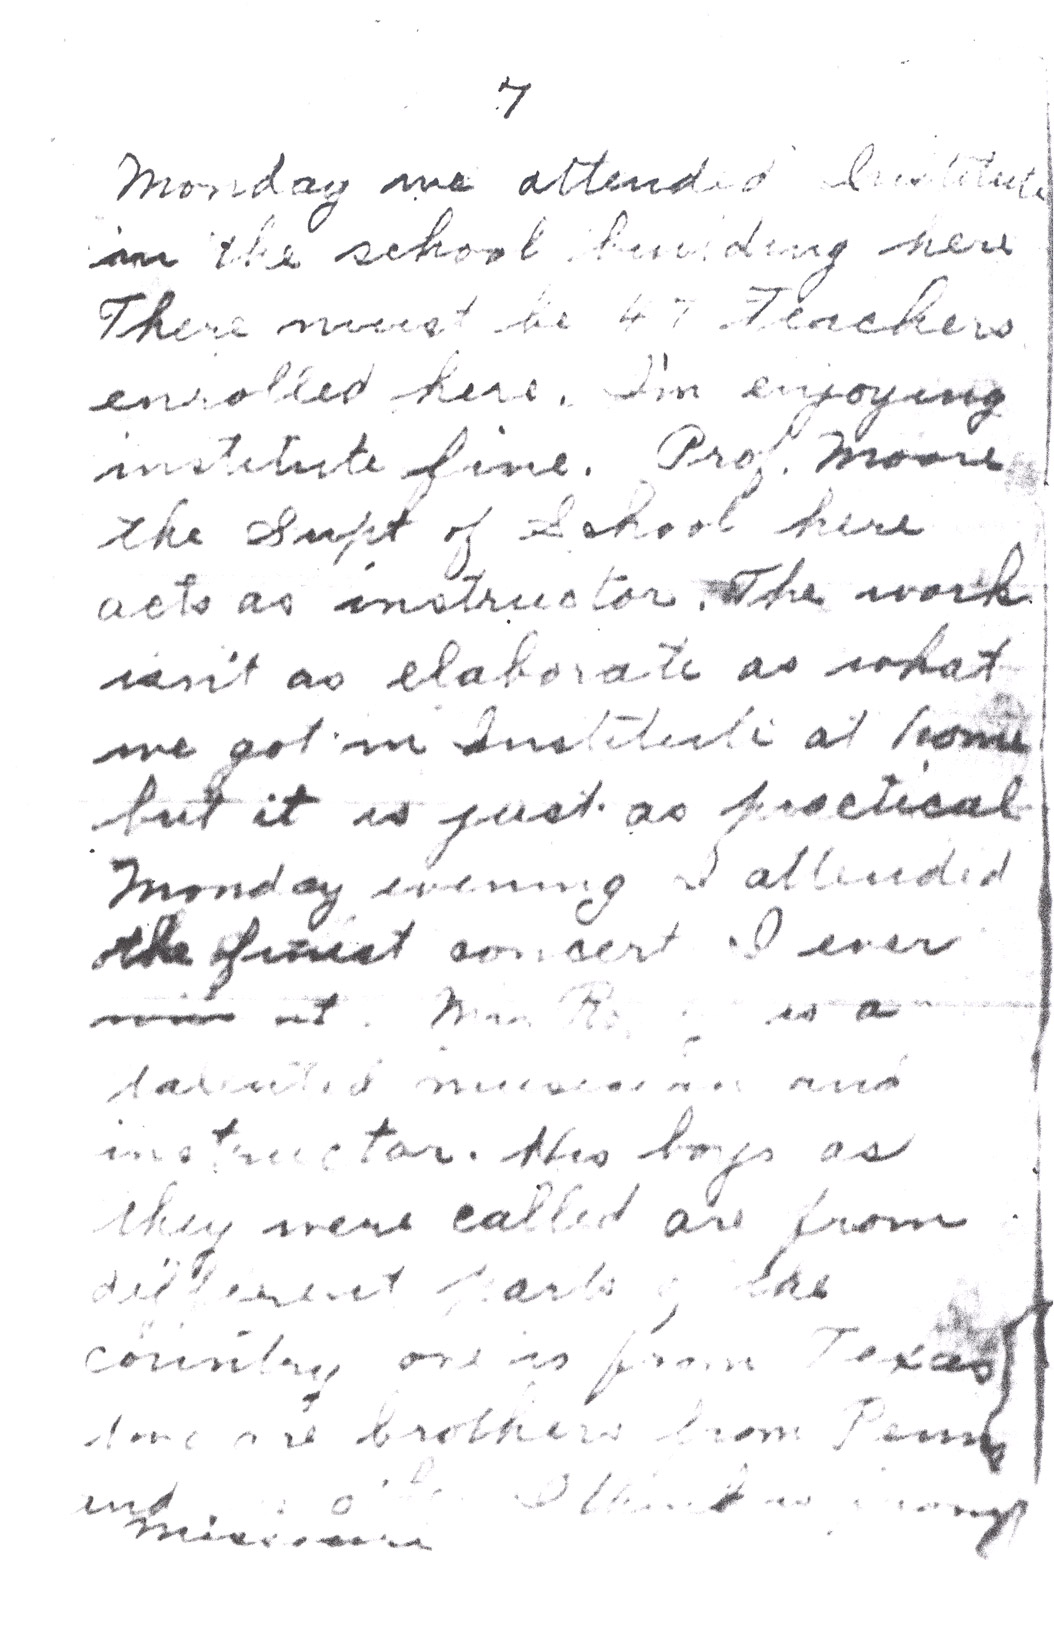 7
Monday we attended Institute
in the school building here
There must be 47 Teachers
enrolled here. I'm enjoying
institute fine. Prof. Moore
the Supt of School here
acts as instructor. The work
isn't as elaborate as what
we got in Institute at home
but it is just as practical
Monday evening I attended
the finest concert I ever
at. is a
talented musician and
instructor. His boys as
they were called are from
different parts of the
country one is from Texas
two are brothers from Penn
and I think is from
Missouri